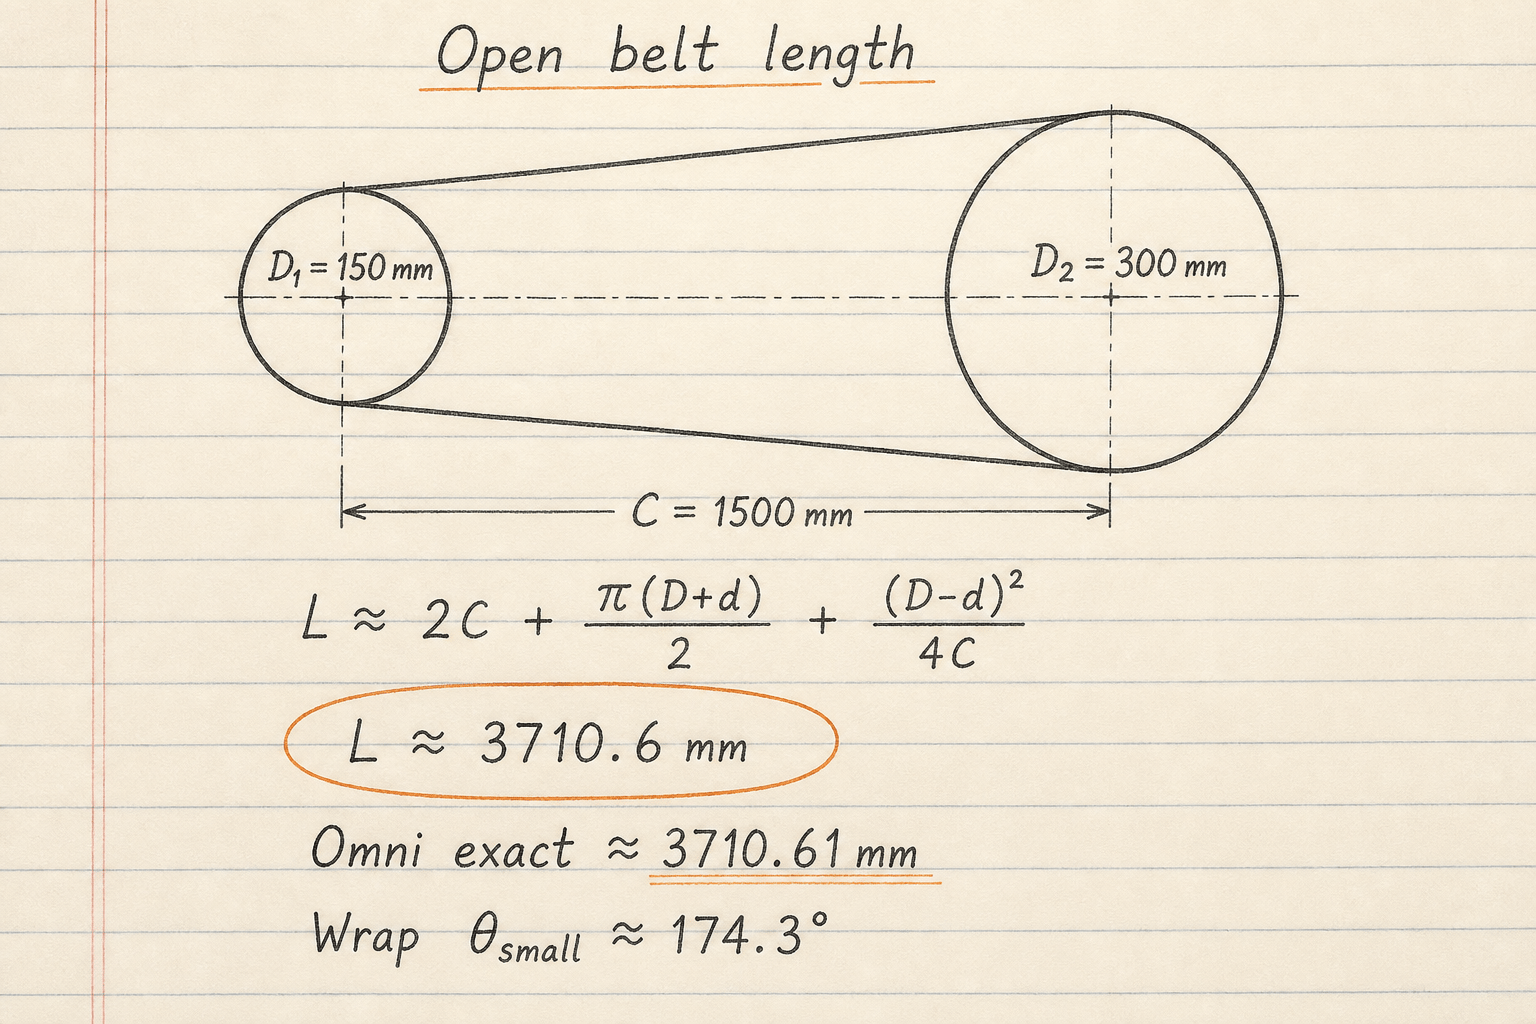 Open belt length
D₁ = 150 mm
D₂ = 300 mm
C = 1500 mm
L ≈ 2C + π(D+d)/2 + (D-d)²/4C
L ≈ 3710.6 mm
Omni exact ≈ 3710.61 mm
Wrap θsmall ≈ 174.3°